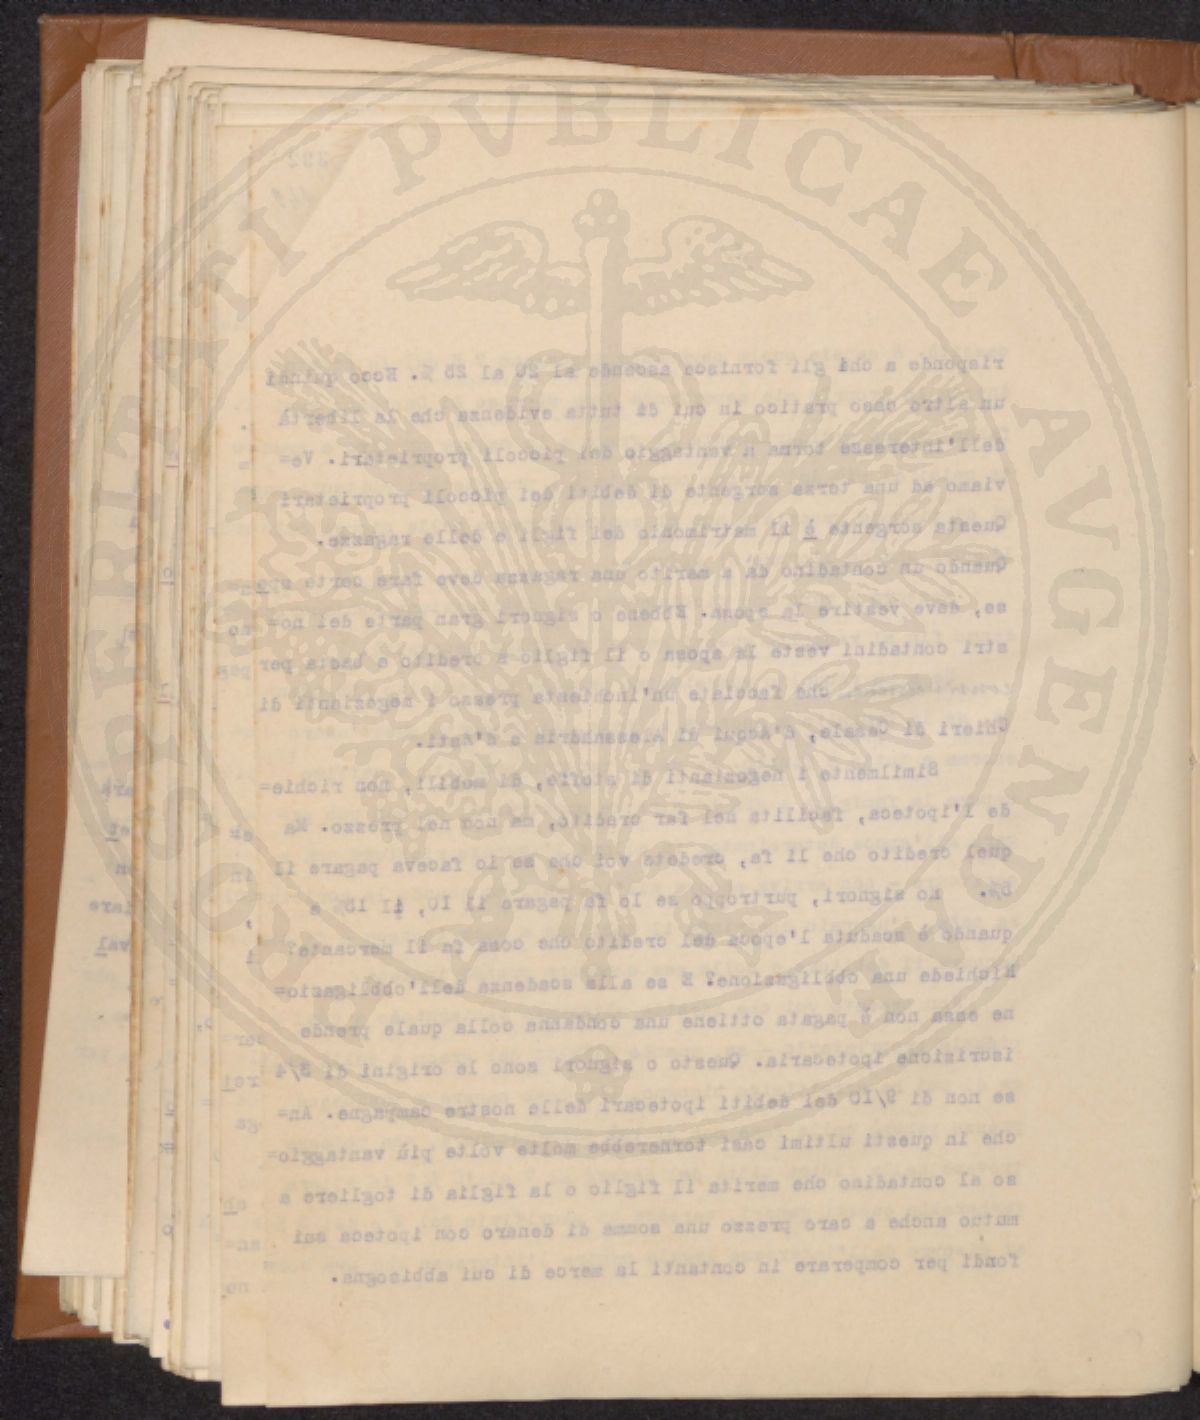 PROSPERITATI PVBLICAE AVGENDAE
392
risponde a chi gli fornisce ascende al 20 al 25 %. Ecco quindi
un altro caso pratico in cui di tutta evidenza che la libertà
dell'interesse torna a vantaggio dei piccoli proprietari. Ve=
viamo ad una terza sorgente di debiti dei piccoli proprietari
Questa sorgente è il matrimonio dei figli e delle ragazze.
Quando un contadino da a marito una ragazza deve fare certe spen=
se, deve vestire la sposa. Ebbene o signori gran parte dei no=
stri contadini veste la sposa o il figlio a credito e basta per
che facciate un'inchiesta presso i negozianti di
Chieri di Casale, d'Acqui di Alessandria e d'Asti.
Similmente i negozianti di stoffe, di mobili, non richie=
de l'ipoteca, facilita nel far credito, ma non nel prezzo. Ma
quel credito che li fa, credete voi che se lo faceva pagare il
5%. No signori, purtroppo se lo fa pagare il 10, il 15% e
quando è scaduta l'epoca del credito che cosa fa il mercante?
Richiede una obbligazione? E se alla scadenza dell'obbligazio=
ne essa non è pagata ottiene una condanna colla quale prende
iscrizione ipotecaria. Questo o signori sono le origini di 3/4
se non di 9/10 dei debiti ipotecari delle nostre campagne. An=
che in questi ultimi casi tornerebbe molte volte più vantaggio=
so al contadino che marita il figlio o la figlia di togliere a
mutuo anche a caro prezzo una somma di denaro con ipoteca sui
fondi per comperare in contanti la merce di cui abbisogna.